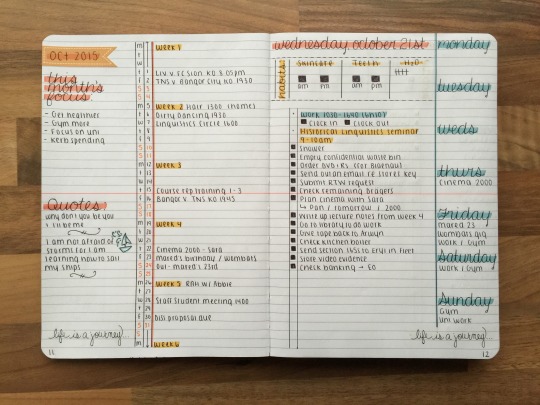 OCT 2015
this
month's
focus:
- Get healthier
- Gym more
- Focus on uni
- Kerb spending
Quotes
why don't you be you
& i'll be me
I am not afraid of
storms for I am
learning how to sail
my ships
life is a journey!
11
Week 1
LIV V FC SION KO 8.05pm
TNS V. Bangor City KO 1930
Week 2 Hair 1300 (home)
Dirty Dancing 1930
Linguistics Circle 1600
Week 3
Course rep training 1-3
Bangor V. TNS KO 1945
Week 4
Cinema 2000 - Sara
Mared's birthday / wombats
Out - Mared's 23rd
Week 5 RAH w/ Abbie
Staff Student meeting 1400
Diss proposal due
Week 6
wednesday october 21st
habits:
Skincare
Teeth
H2O
am pm
am pm
Work 1030 - 1640
Clock in
Clock out
Historical Linguistics Seminar
9-10am
Shower
Empty confidential waste bin
Send out an email re stores key
Submit RTW request
Check remaining
Plan cinema with Sara
↳ Pan / tomorrow / 2000
Write up lecture notes from week 4
Go to library to do work
Give tape back to
Check kitchen boiler
Send section 165s to Eryl in Fleet
Store video evidence
Check banking → £0
monday
tuesday
weds
thurs
Cinema 2000
Friday
Mared 23
Wombats gig
Work / Gym
Saturday
Work / Gym
Sunday
Gym
Uni work
life is a journey!
12